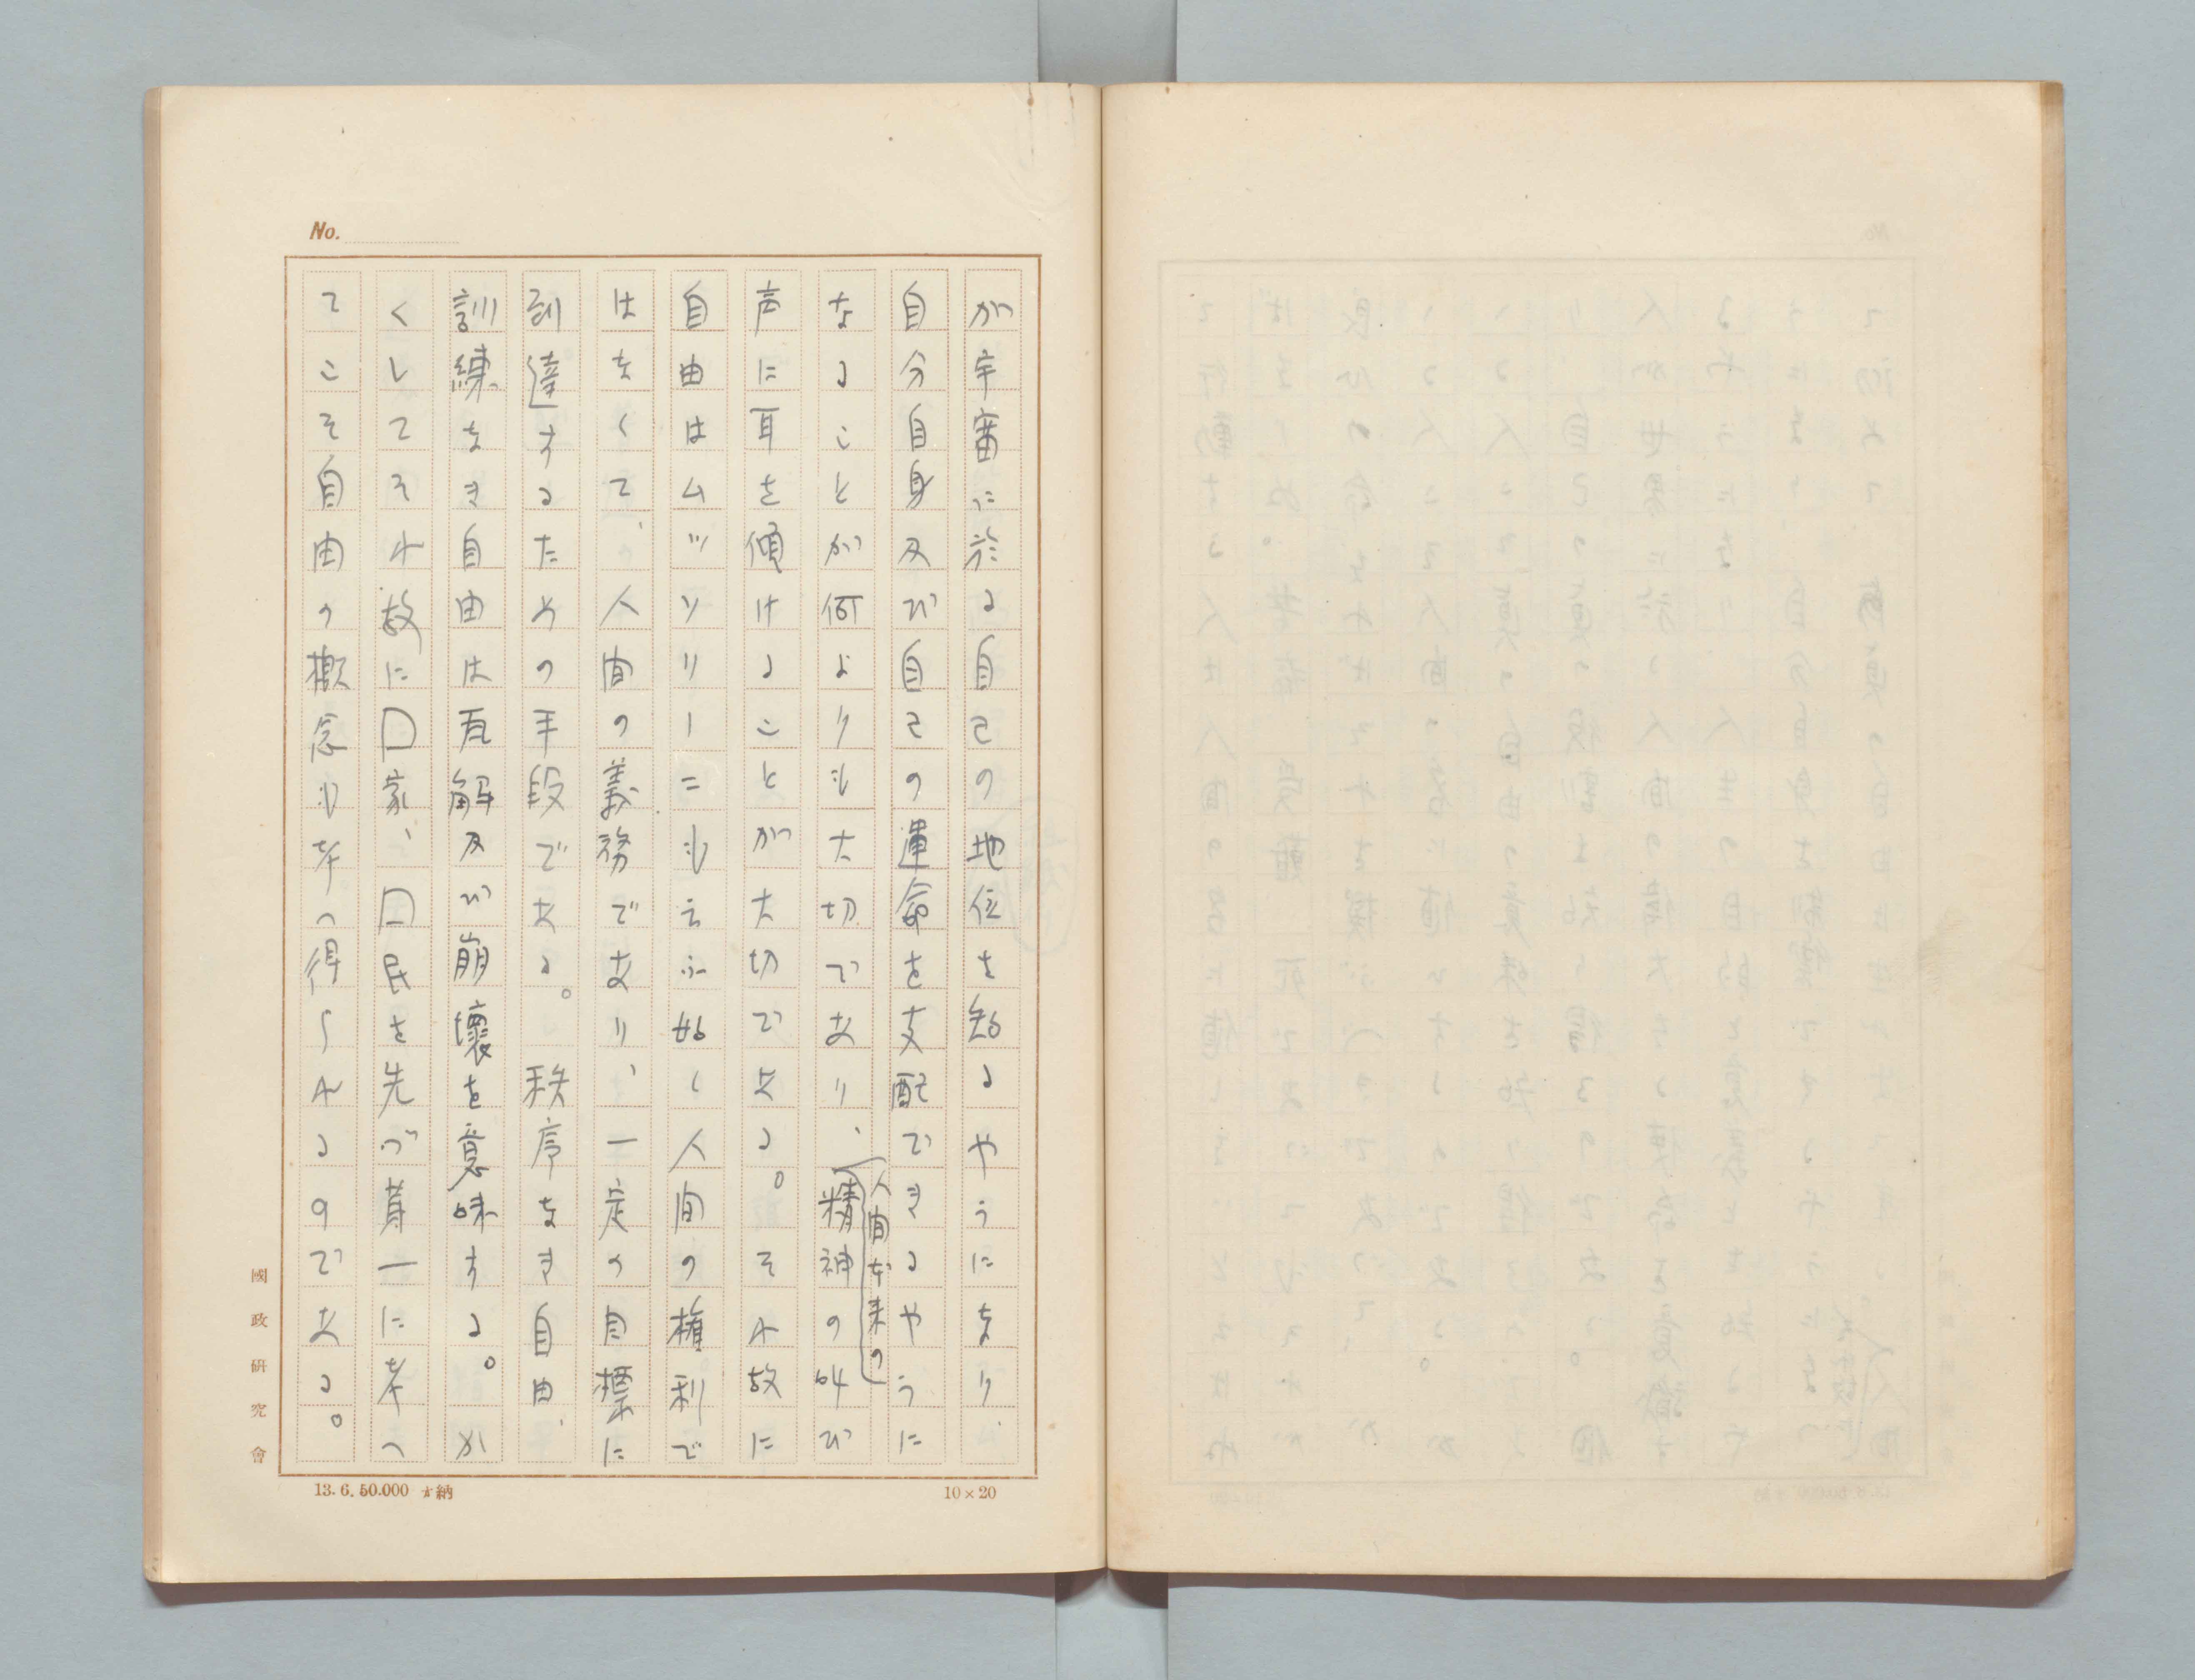 No.
が宇宙に於る自己の地位を知るやうになり、
自分自身及び自己の運命を支配できるやうに
なることが何よりも大切であり、人間本来の精神の叫び
声に耳を傾けることが大切である。それ故に
自由はムッソリーニも云ふ如く人間の権利で
はなくて、人間の義務であり、一定の目標に
到達するための手段である。秩序なき自由、
訓練なき自由は瓦解及び崩壊を意味する。か
くしてそれ故に囗家、囗民を先づ第一に考へ
てこそ自由の概念も考へ得られるのである。
國政研究會
13.6.50.000 納
10×20